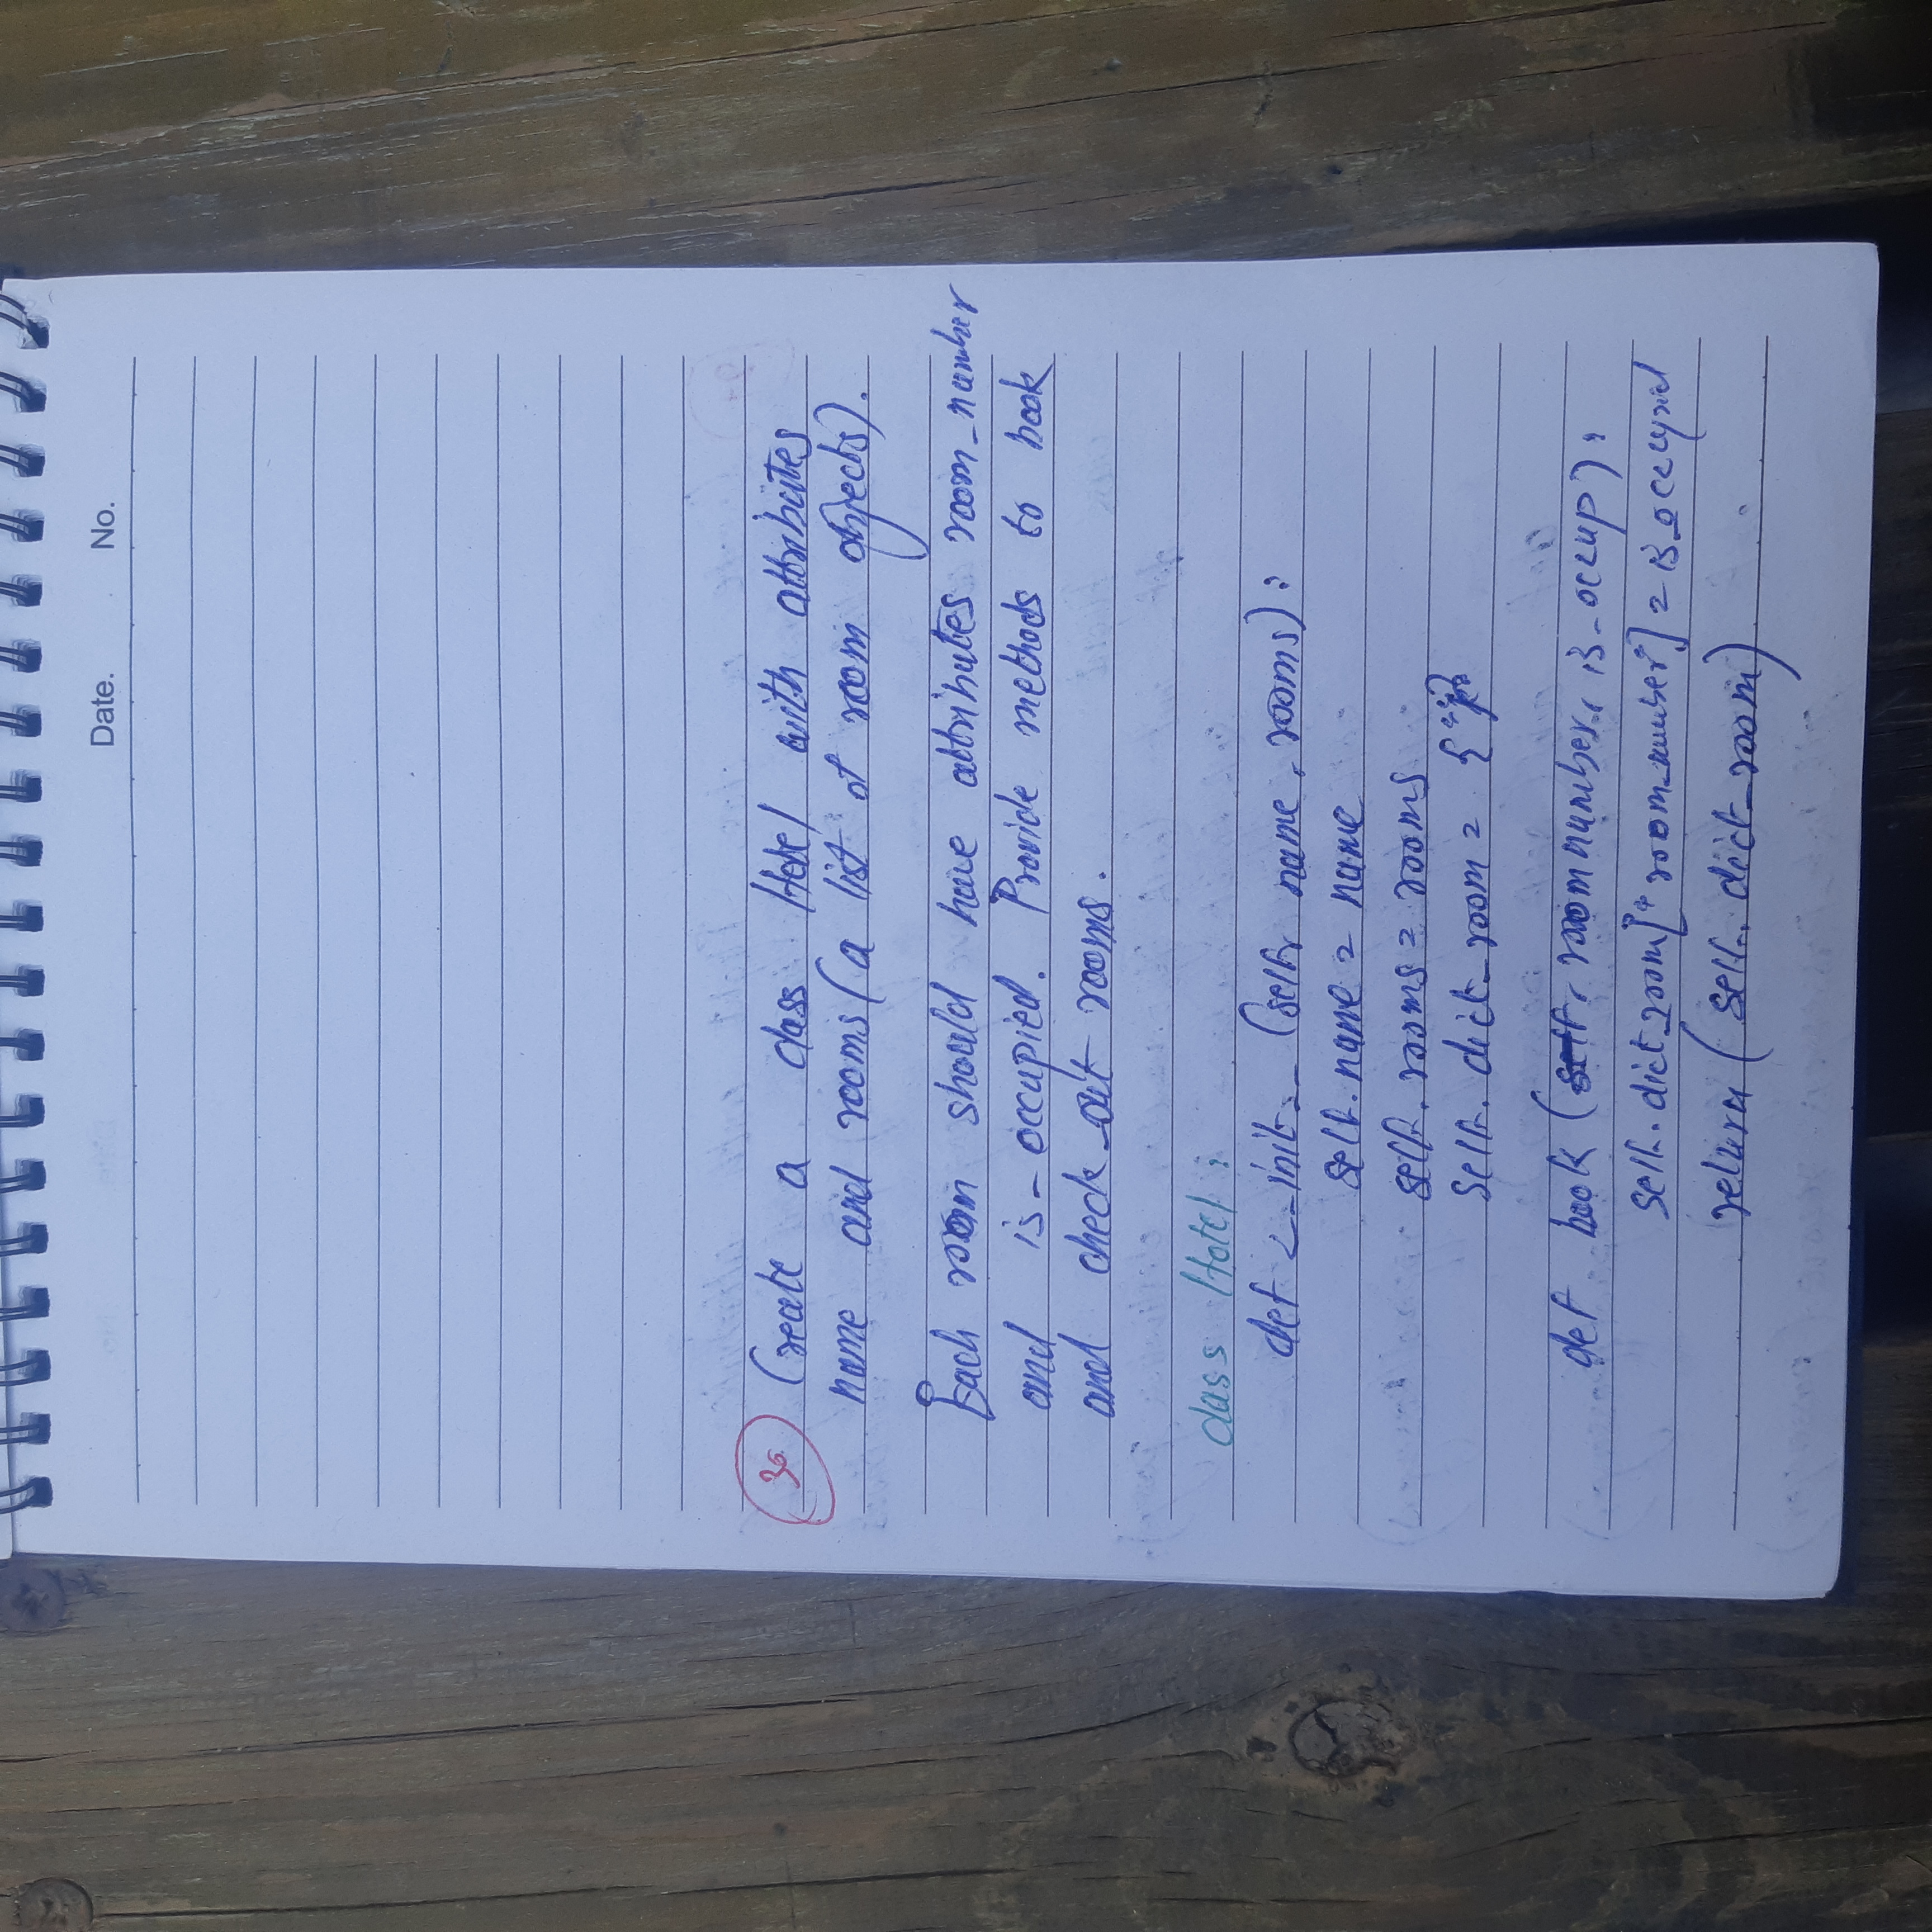 Date. No.
36 Create a class Hotel with attributes
name and rooms (a list of room objects).
Each room should have attributes room_number
and is_occupied. Provide methods to book
and check_out rooms.
class Hotel:
def __init__ (self, name, rooms):
self.name = name
self.rooms = rooms
self.dict_room = {
def book (self, room number, is_occup):
self.dict_room["room_number"] = is_occupied
return (self.dict_room)